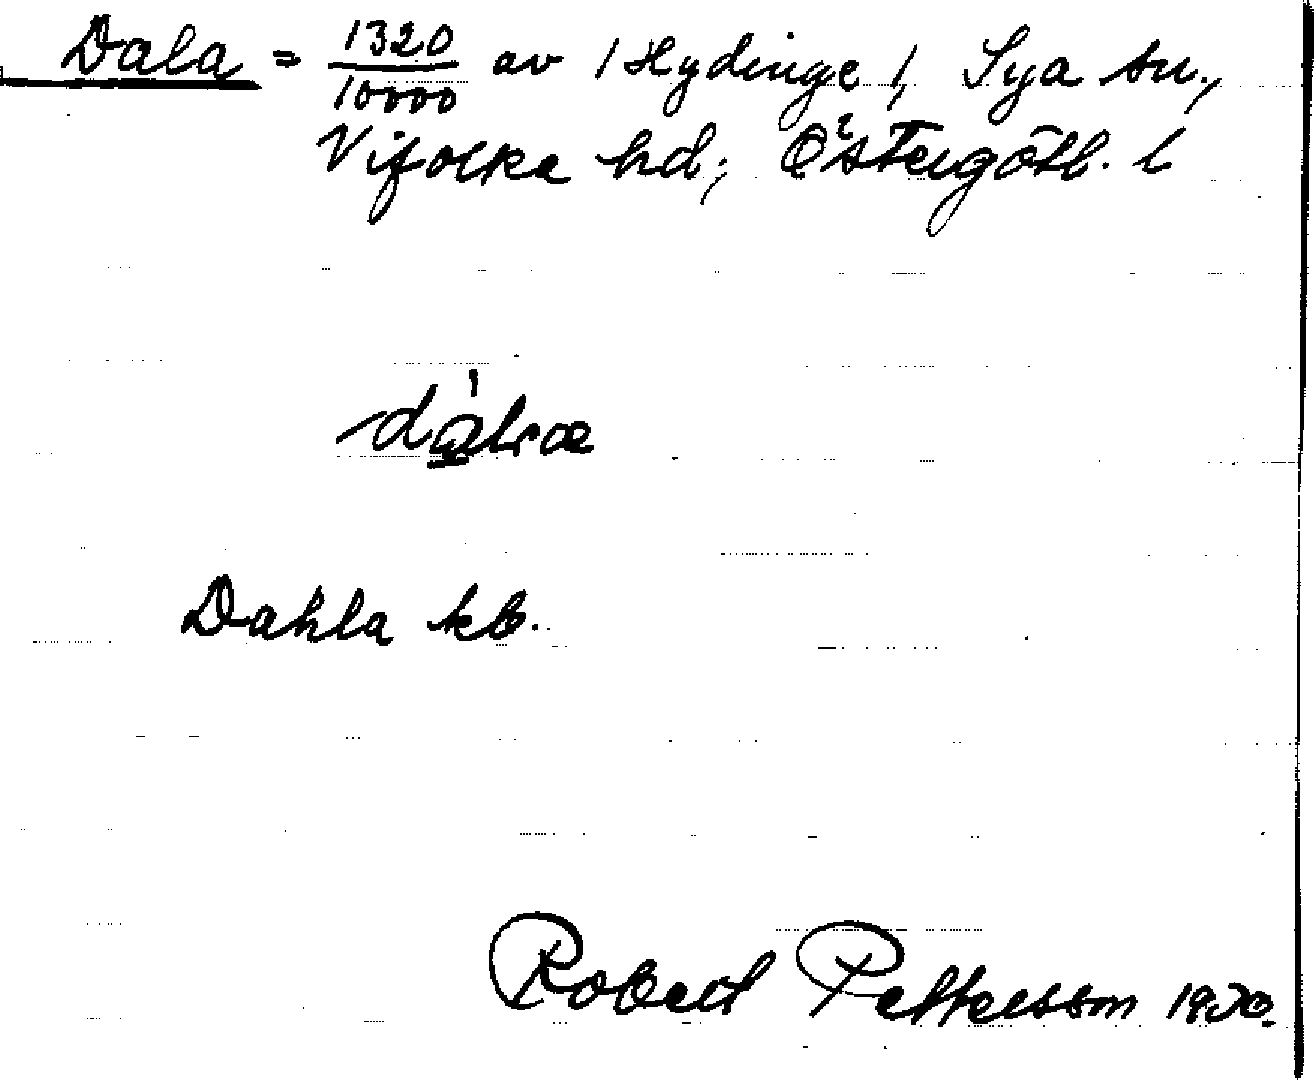 Dala = 1320/10000 av /Hydinge/, Sya sn.,
Vifolka hd; Östergötl. l
Dahla kb.
Robert Pettersson